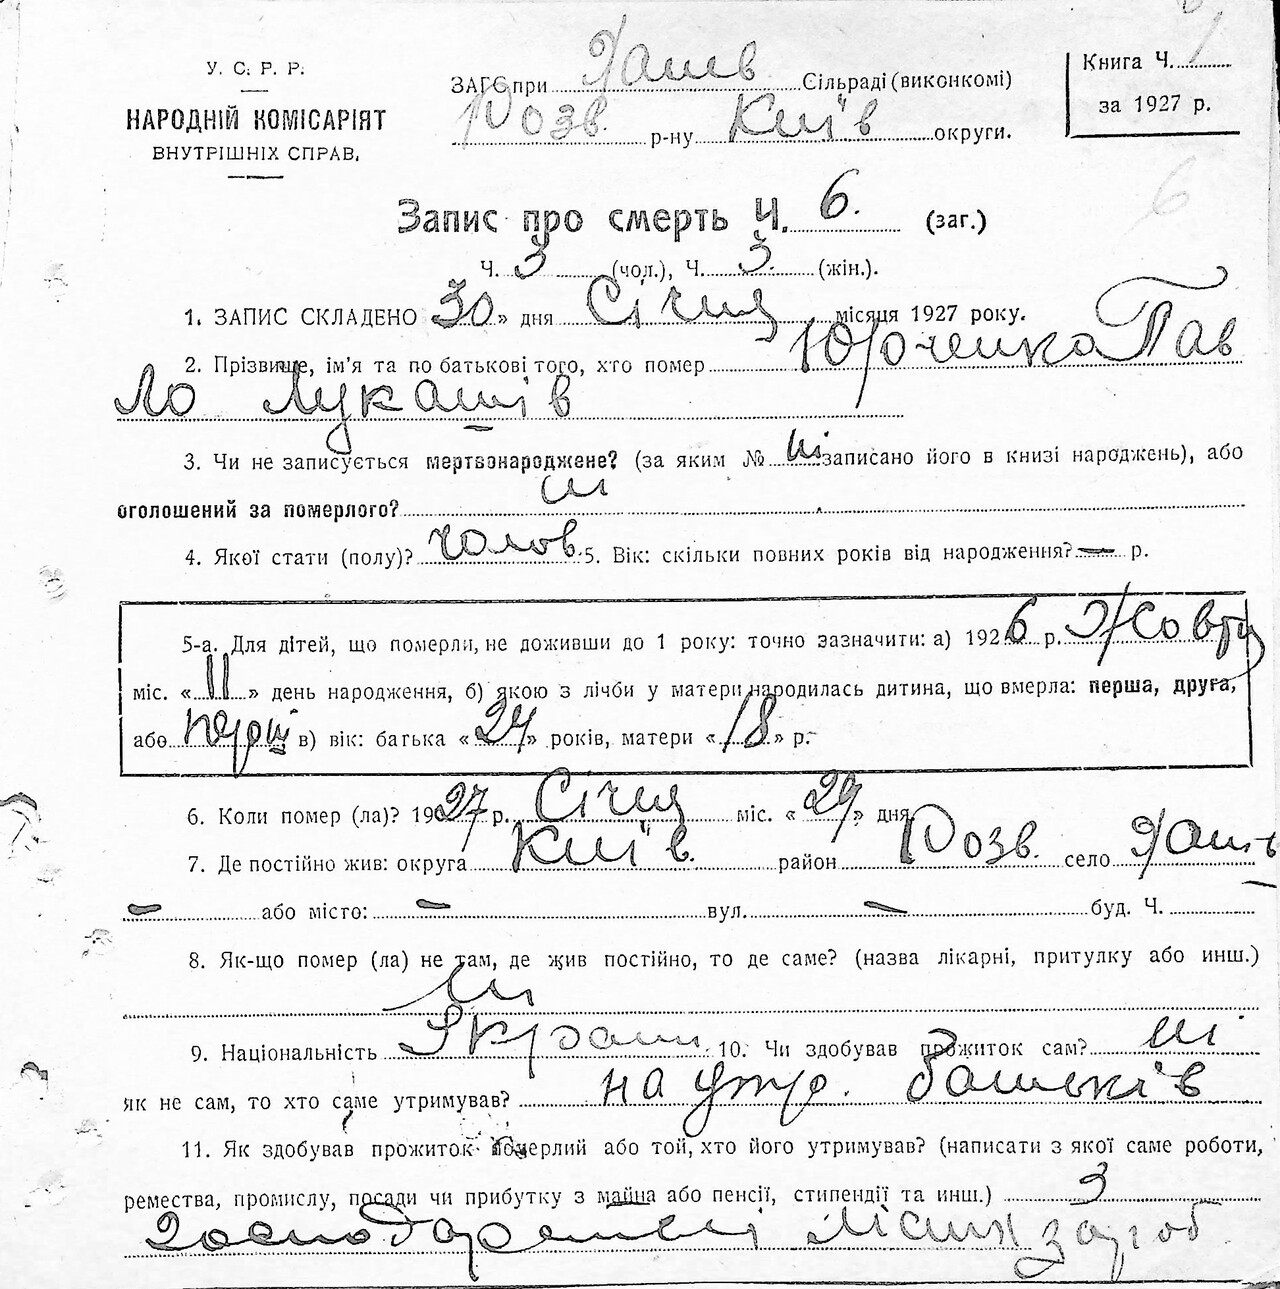 У. С. Р. Р.
НАРОДНІЙ КОМІСАРІЯТ
ВНУТРІШНІХ СПРАВ.
ЗАГС при Яшів Сільраді (виконкомі)
Розв. р-ну Київ округи.
Книга Ч. 1
за 1927 р.
6
Запис про смерть Ч. 6. (заг.)
Ч. 3 (чол.), Ч. 3. (жін.).
1. ЗАПИС СКЛАДЕНО «30» дня Січня місяця 1927 року.
2. Прізвище, ім'я та по батькові того, хто помер Юрченко Пав
ло Лукашів
3. Чи не записується мертвонароджене? (за яким № ні записано його в книзі народжень), або
оголошений за померлого? ні
4. Якої стати (полу)? чолов. 5. Вік: скільки повних років від народження? — р.
5-а. Для дітей, що померли, не доживши до 1 року: точно зазначити: а) 1926 р. Жовтня
міс. «11» день народження, б) якою з лічби у матери народилась дитина, що вмерла: перша, друга,
або перш в) вік: батька «24» років, матери «18» р.
6. Коли помер (ла)? 1927 р. Січня міс. «29» дня
7. Де постійно жив: округа Київ. район Розв. село
— або місто: — вул. — буд. Ч.
8. Як-що помер (ла) не там, де жив постійно, то де саме? (назва лікарні, притулку або инш.)
ні
9. Національність Україн 10. Чи здобував прожиток сам? ні
як не сам, то хто саме утримував? на утр. батьків
11. Як здобував прожиток померлий або той, хто його утримував? (написати з якої саме роботи,
ремества, промислу, посади чи прибутку з майна або пенсії, стипендії та инш.) З
господарства лісних зароб